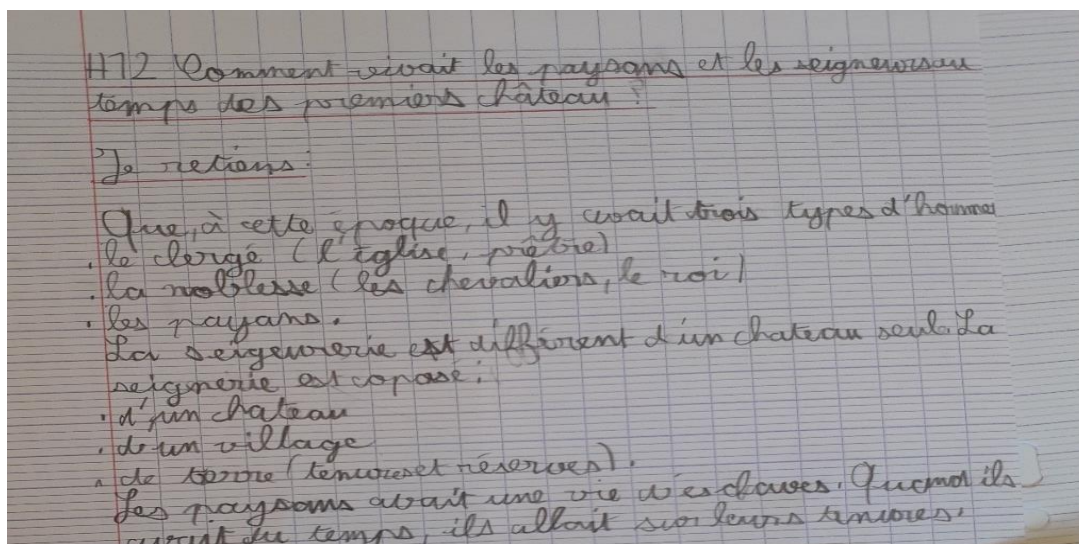 H12 Comment vivait les paysans et les seigneurs au
temps des premiers château ?
Je retiens :
Que, à cette époque, il y avait trois types d'hommes
. le clergé (l'église, prêtre)
. la noblesse (les chevaliers, le roi)
. les paysans.
La seigeurerie est différent d'un chateau seul. La
seignerie est copose :
. d'un chateau
. d'un village
. de terre (tenures et réserves).
Les paysans avait une vie d'esclaves. Quand ils
avait du temps, ils allait sur leurs tenures.